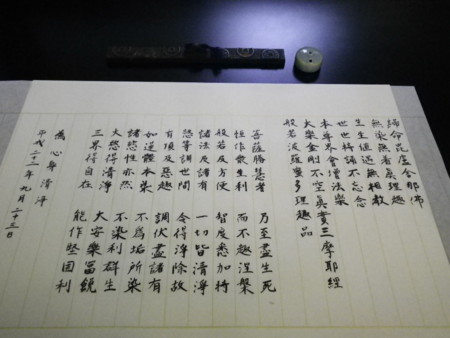 歸命毘盧舍那佛
無染無着眞理趣
生生値遇無相教
世世持誦不忘念
本尊界會增法樂
大樂金剛不空眞實三摩耶經
般若波羅蜜多理趣品
菩薩勝慧者 乃至盡生死
恒作衆生利 而不趣涅槃
般若及方便 智度悉加持
諸法及諸有 一切皆清淨
慾等調世間 令得淨除故
有頂及惡趣 調伏盡諸有
如蓮體本染 不爲垢所染
諸慾性亦然 不染利群生
大慾得清淨 大安樂富饒
三界得自在 能作堅固利
為心身清淨
平成二十二年九月二十三日